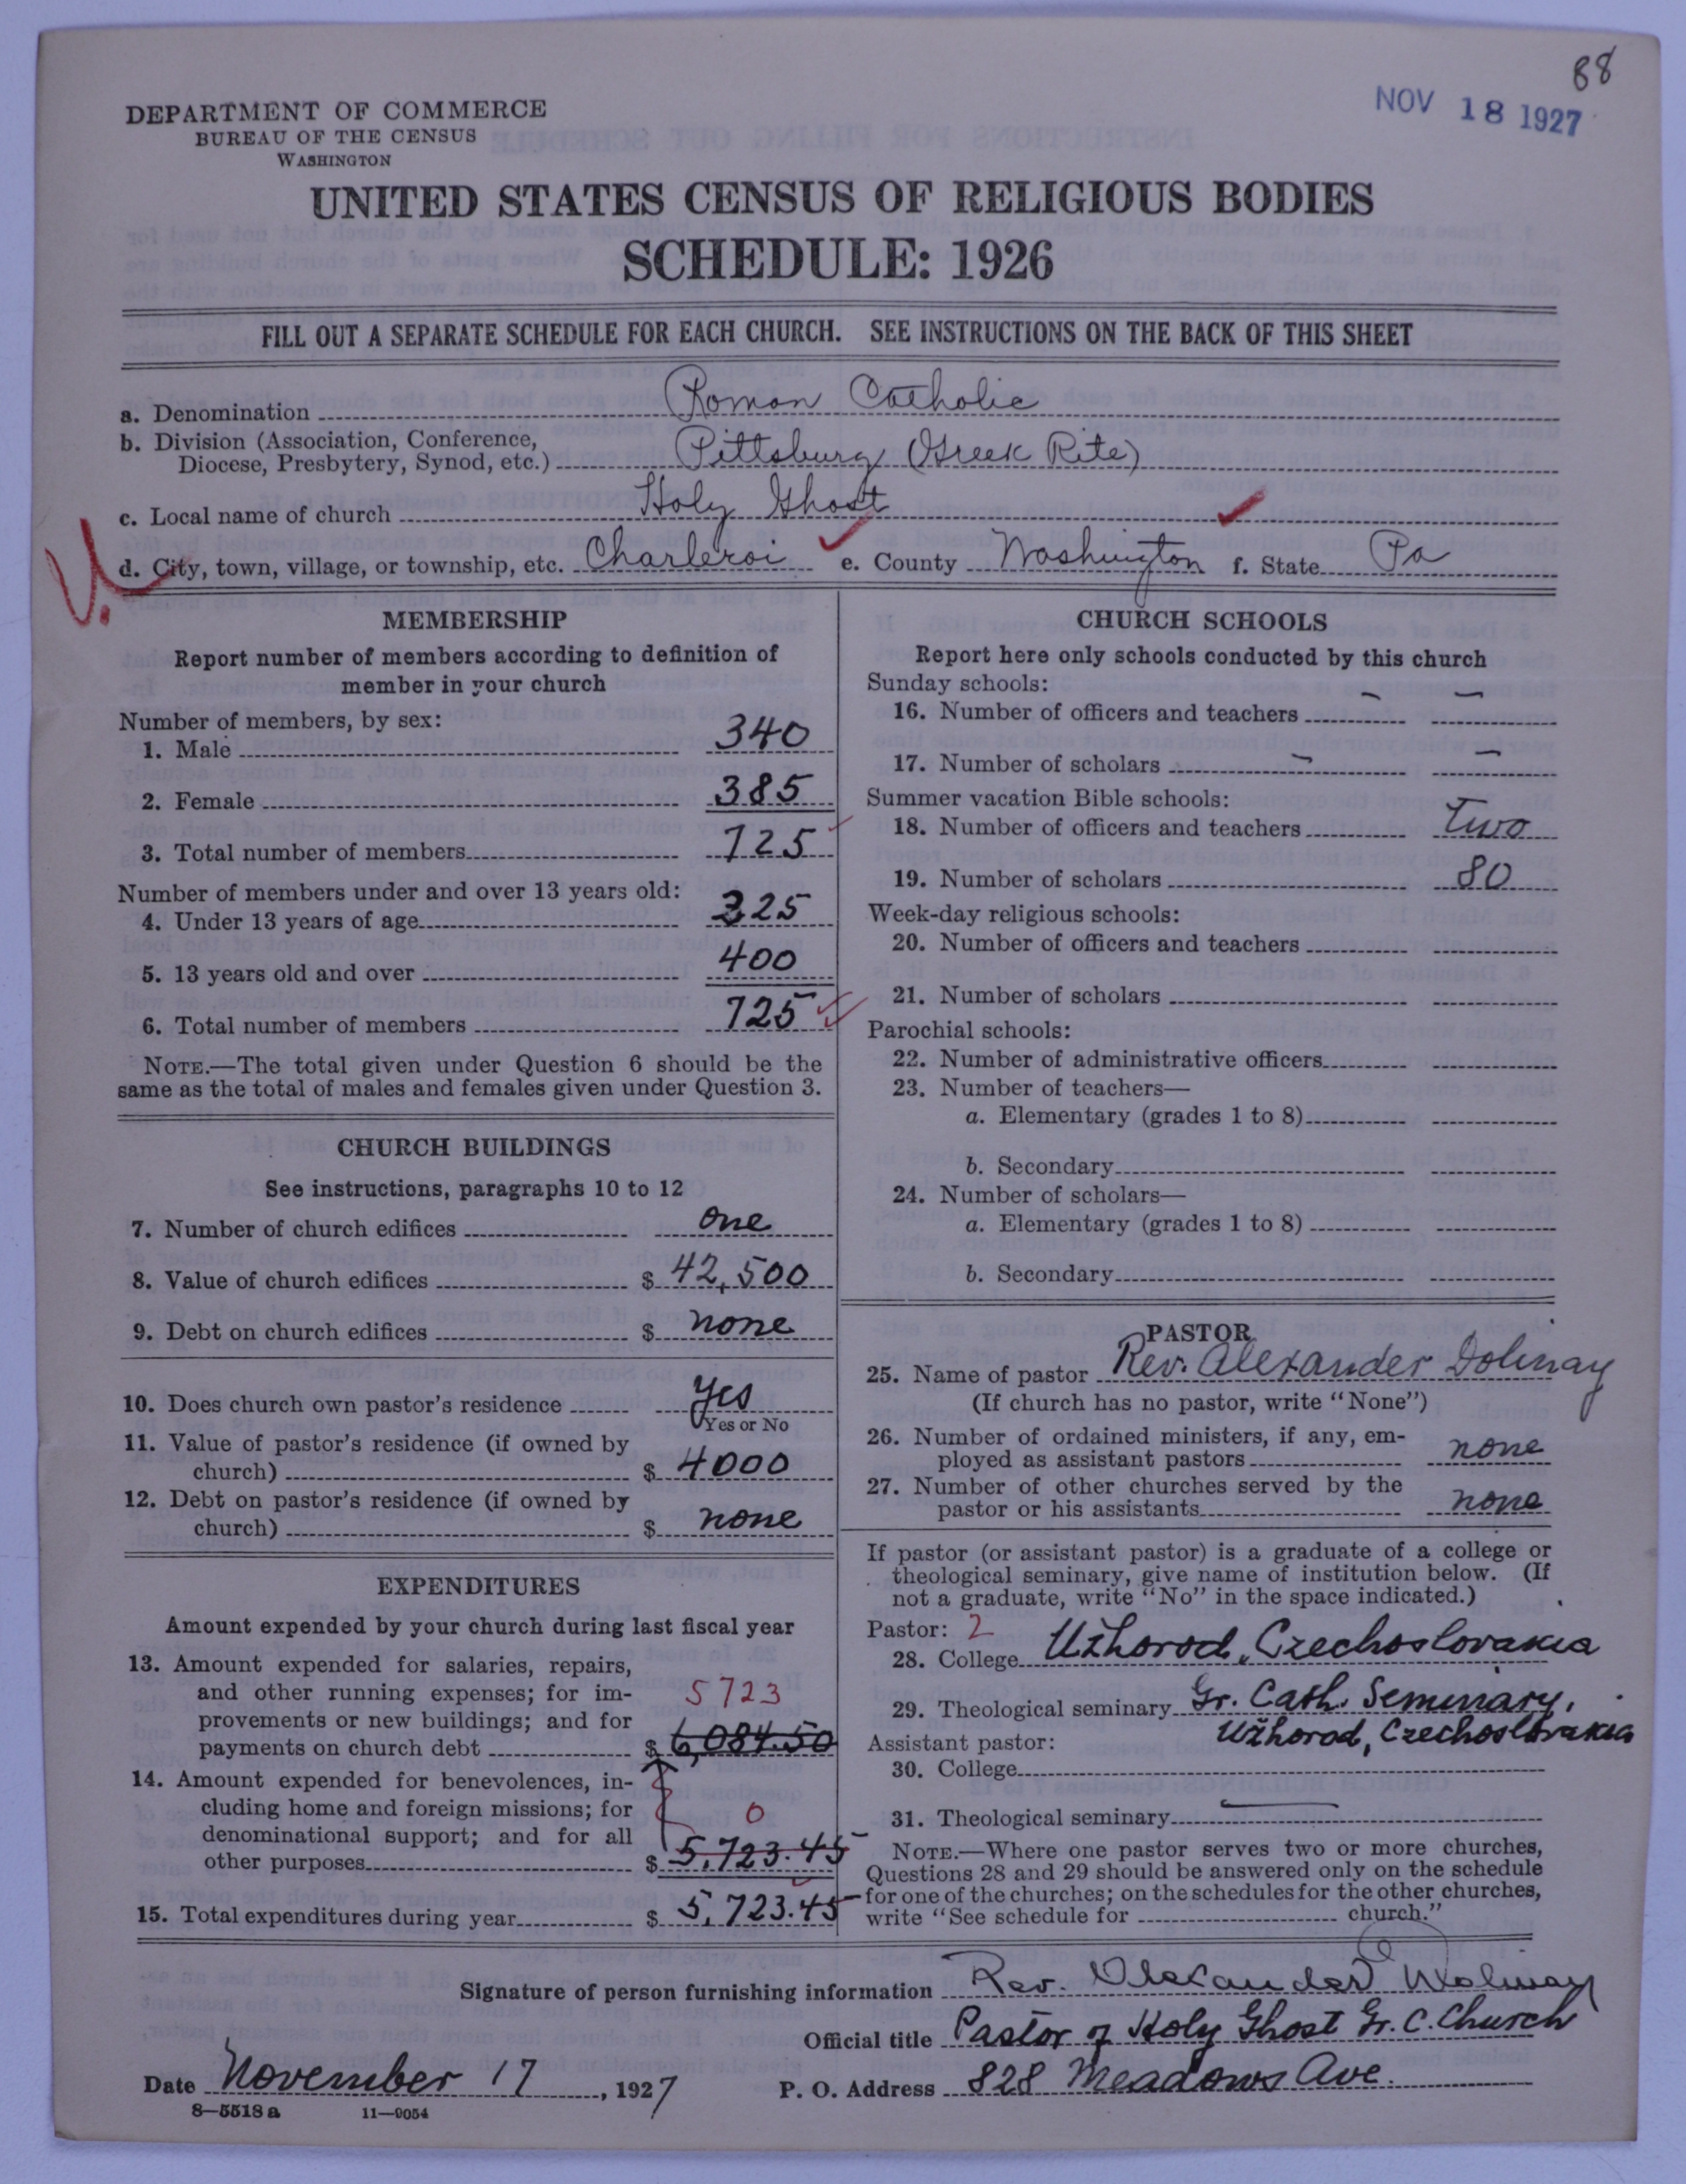 88
NOV 18 1927
DEPARTMENT OF COMMERCE
BUREAU OF THE CENSUS
WASHINGTON
UNITED STATES CENSUS OF RELIGIOUS BODIES
SCHEDULE: 1926
FILL OUT A SEPARATE SCHEDULE FOR EACH CHURCH. SEE INSTRUCTIONS ON THE BACK OF THIS SHEET
a. Denomination Roman Catholic
b. Division (Association, Conference,
Diocese, Presbytery, Synod, etc.) Pittsburg (Greek Rite)
c. Local name of church Holy Ghost
d. City, town, village, or township, etc. Charleroi e. County Washington f. State Pa
MEMBERSHIP
Report number of members according to definition of
member in your church
Number of members, by sex:
1. Male 340
2. Female 385
3. Total number of members 725
Number of members under and over 13 years old:
4. Under 13 years of age 325
5. 13 years old and over 400
6. Total number of members 725
NOTE.—The total given under Question 6 should be the
same as the total of males and females given under Question 3.
CHURCH BUILDINGS
See instructions, paragraphs 10 to 12
7. Number of church edifices one
8. Value of church edifices $ 42,500
9. Debt on church edifices $ none
10. Does church own pastor's residence Yes
Yes or No
11. Value of pastor's residence (if owned by
church) $ 4000
12. Debt on pastor's residence (if owned by
church) $ none
EXPENDITURES
Amount expended by your church during last fiscal year
13. Amount expended for salaries, repairs,
and other running expenses; for im-
5723
provements or new buildings; and for
payments on church debt $ 6,084.50
14. Amount expended for benevolences, in-
cluding home and foreign missions; for 0
denominational support; and for all
other purposes $ 5,723.45
15. Total expenditures during year $ 5,723.45
CHURCH SCHOOLS
Report here only schools conducted by this church
Sunday schools:
16. Number of officers and teachers – –
17. Number of scholars – –
Summer vacation Bible schools:
18. Number of officers and teachers two
19. Number of scholars 80
Week-day religious schools:
20. Number of officers and teachers
21. Number of scholars
Parochial schools:
22. Number of administrative officers
23. Number of teachers—
a. Elementary (grades 1 to 8)
b. Secondary
24. Number of scholars—
a. Elementary (grades 1 to 8)
b. Secondary
PASTOR
25. Name of pastor Rev. Alexander Dolinay
(If church has no pastor, write "None")
26. Number of ordained ministers, if any, em-
ployed as assistant pastors none
27. Number of other churches served by the
pastor or his assistants none
If pastor (or assistant pastor) is a graduate of a college or
theological seminary, give name of institution below. (If
not a graduate, write "No" in the space indicated.)
Pastor: 2
28. College Užhorod, Czechoslovakia
29. Theological seminary Gr. Cath. Seminary,
Užhorod, Czechoslovakia
Assistant pastor:
30. College
31. Theological seminary
NOTE.—Where one pastor serves two or more churches,
Questions 28 and 29 should be answered only on the schedule
for one of the churches; on the schedules for the other churches,
write "See schedule for church."
Signature of person furnishing information Rev. Alexander Dolinay
Official title Pastor of Holy Ghost Gr. C. Church
Date November 17, 1927 P. O. Address 828 Meadows Ave.
8—5518a 11—9054